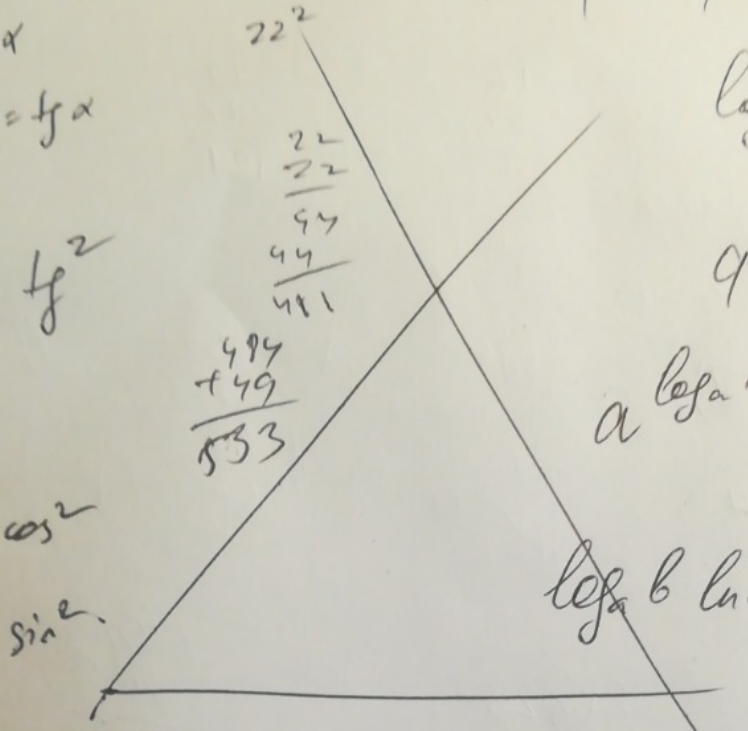 α
= tg α
tg²
cos²
sin²
22²
22
22
44
44
484
+49
533
a^log_a
log_a b ln